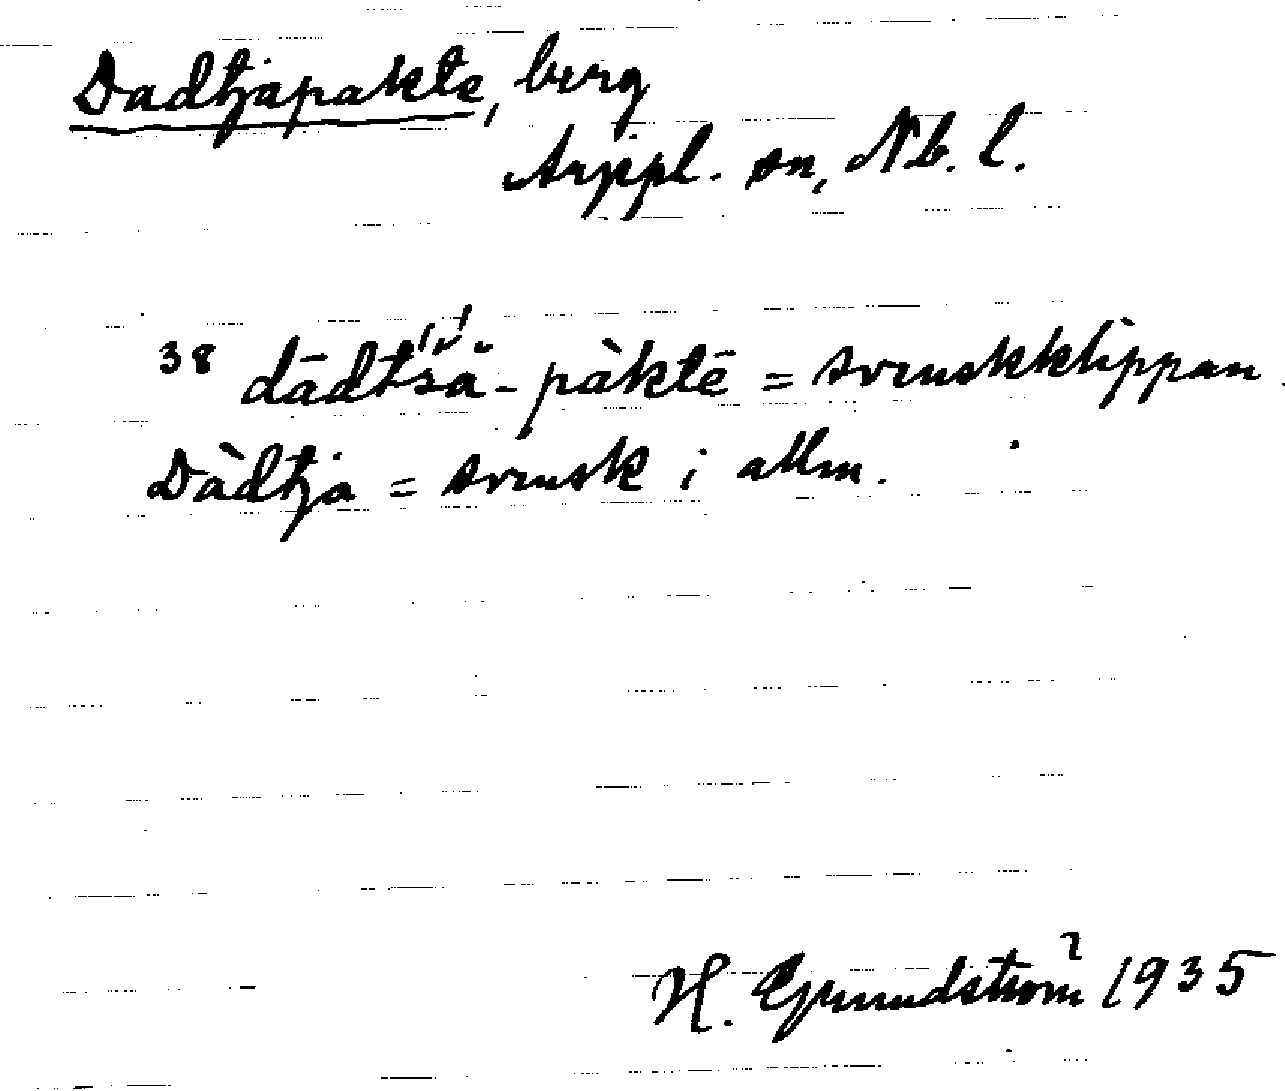 Dadtjapakte, berg
Arjepl. sn, Nb. l.
38 dādt'š'ằ-pàktē = svenskklippan.
Dàdtja = svensk i allm.
H. Grundström 1935